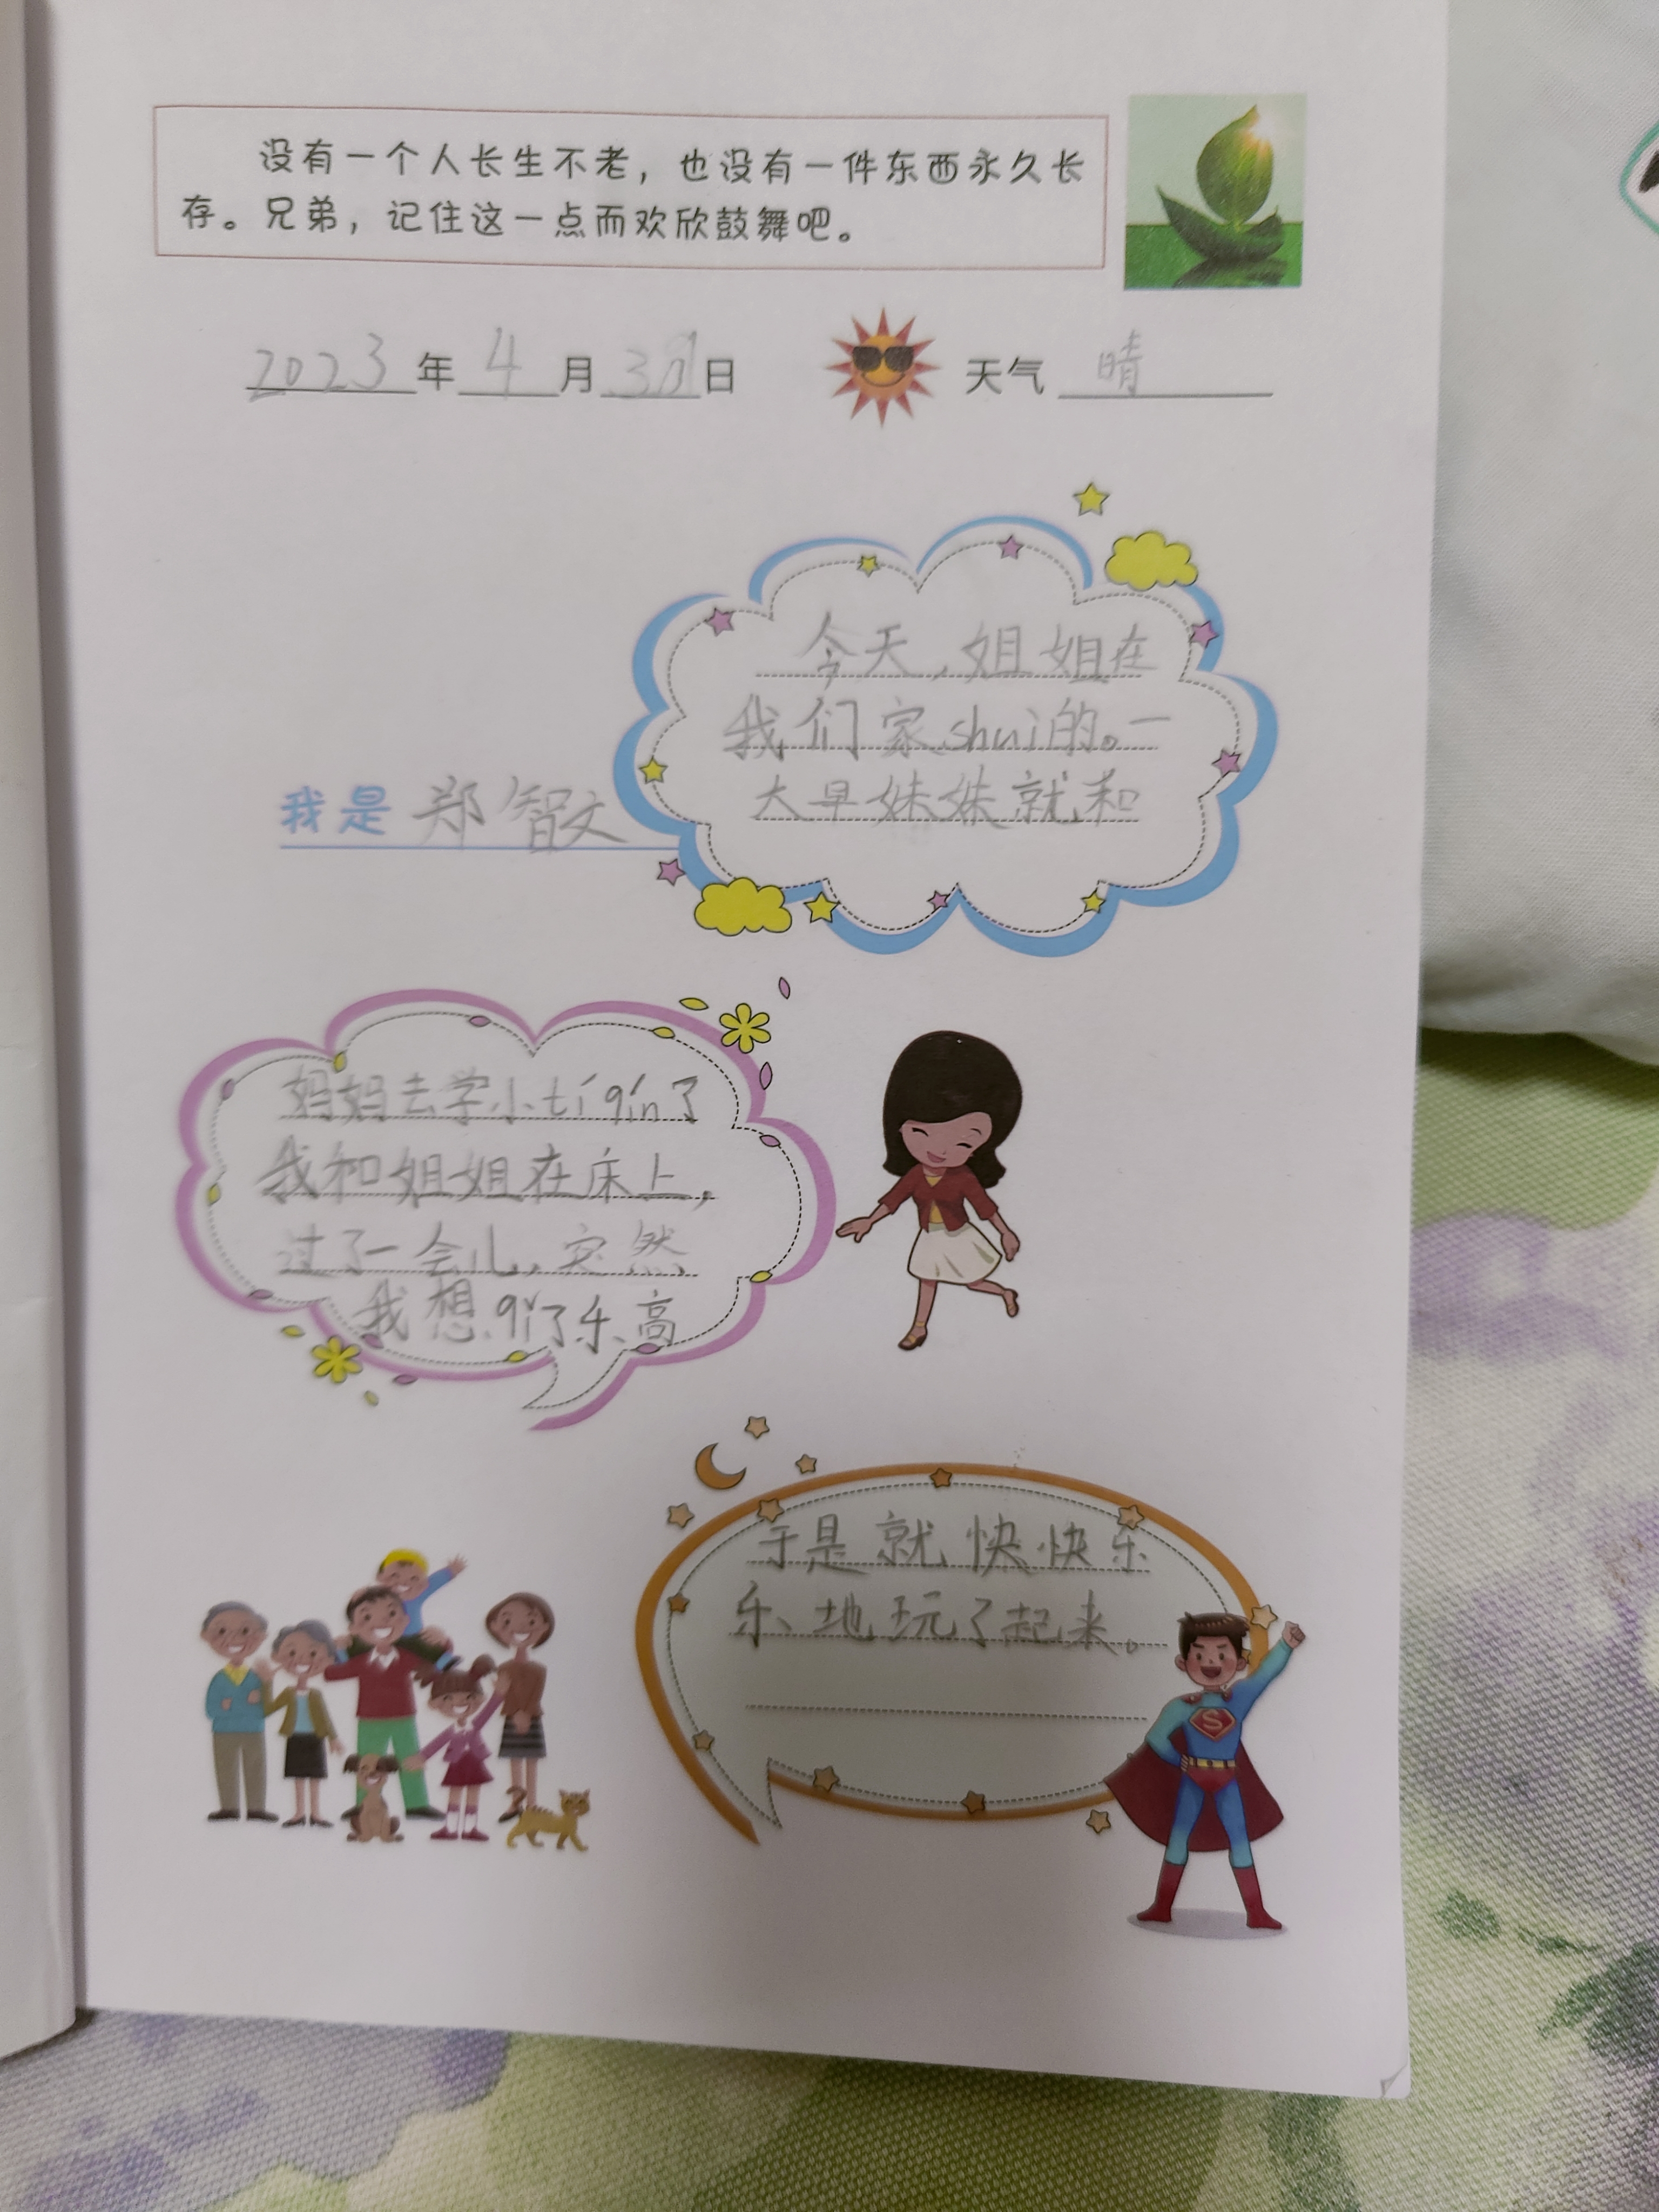 没有一个人长生不老，也没有一件东西永久长
存。兄弟，记住这一点而欢欣鼓舞吧。
2023年4月3日 天气 晴
今天，姐姐在
我们家shuì的。一
大早妹妹就和
我是 郑智文
妈妈去学小tí qín了
我和姐姐在床上，
过了一会儿，突然
我想qǐ了乐高
于是就快快乐
乐地玩了起来。
S